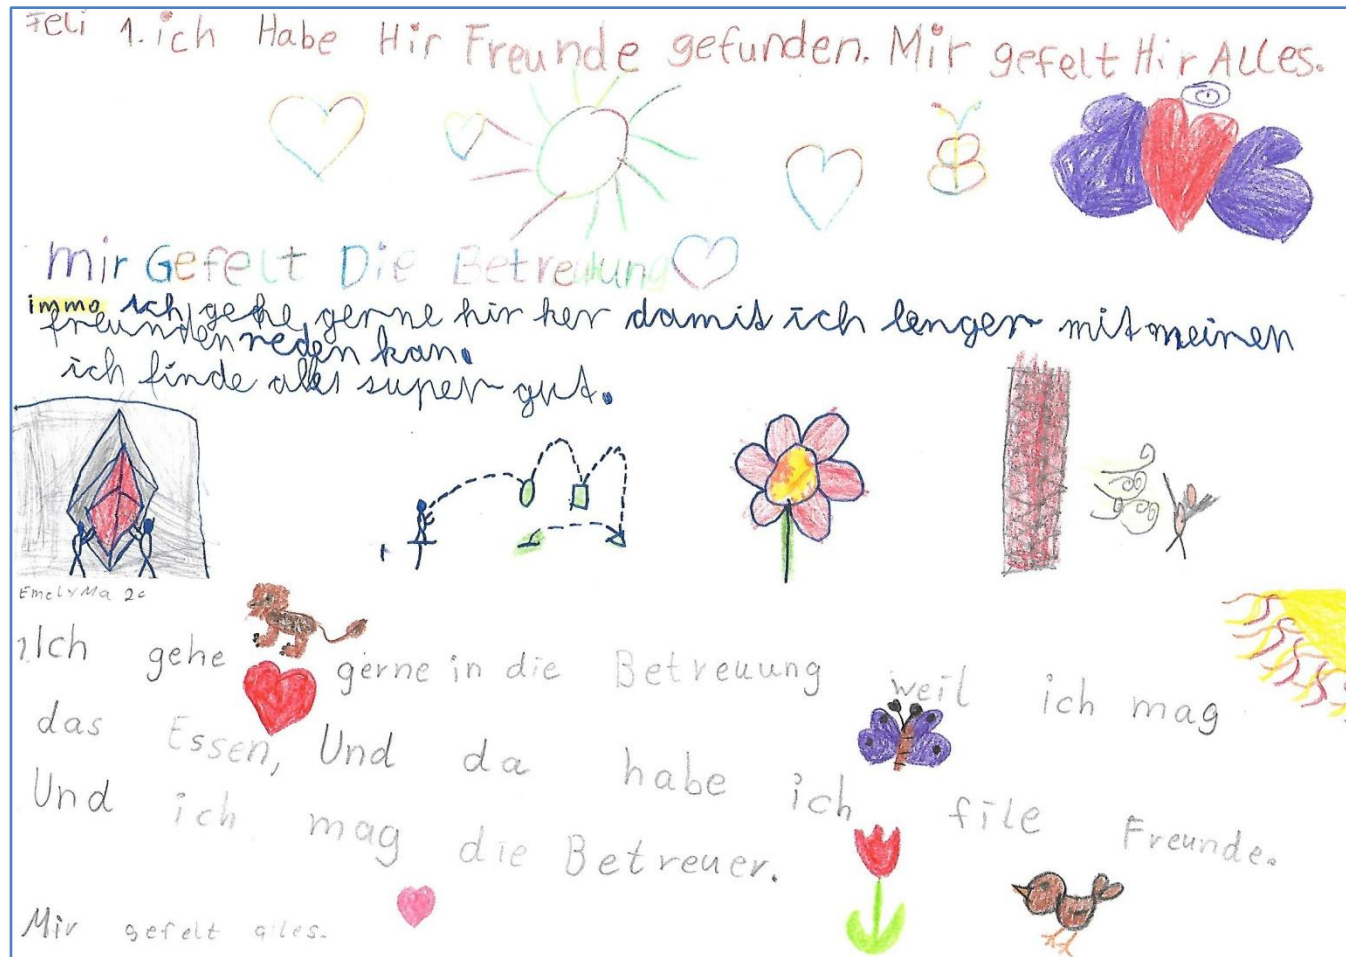 Feli 1. ich Habe Hir Freunde gefunden. Mir gefelt Hir ALLes.
mir Gefelt Die Betreuung
immo ich gehe gerne hir her damit ich lenger mit meinen
freunden reden kan.
ich finde alles super gut.
Emely Ma 2c
1. Ich gehe gerne in die Betreuung weil ich mag
das Essen, Und da habe ich file Freunde.
Und ich mag die Betreuer.
Mir gefelt alles.